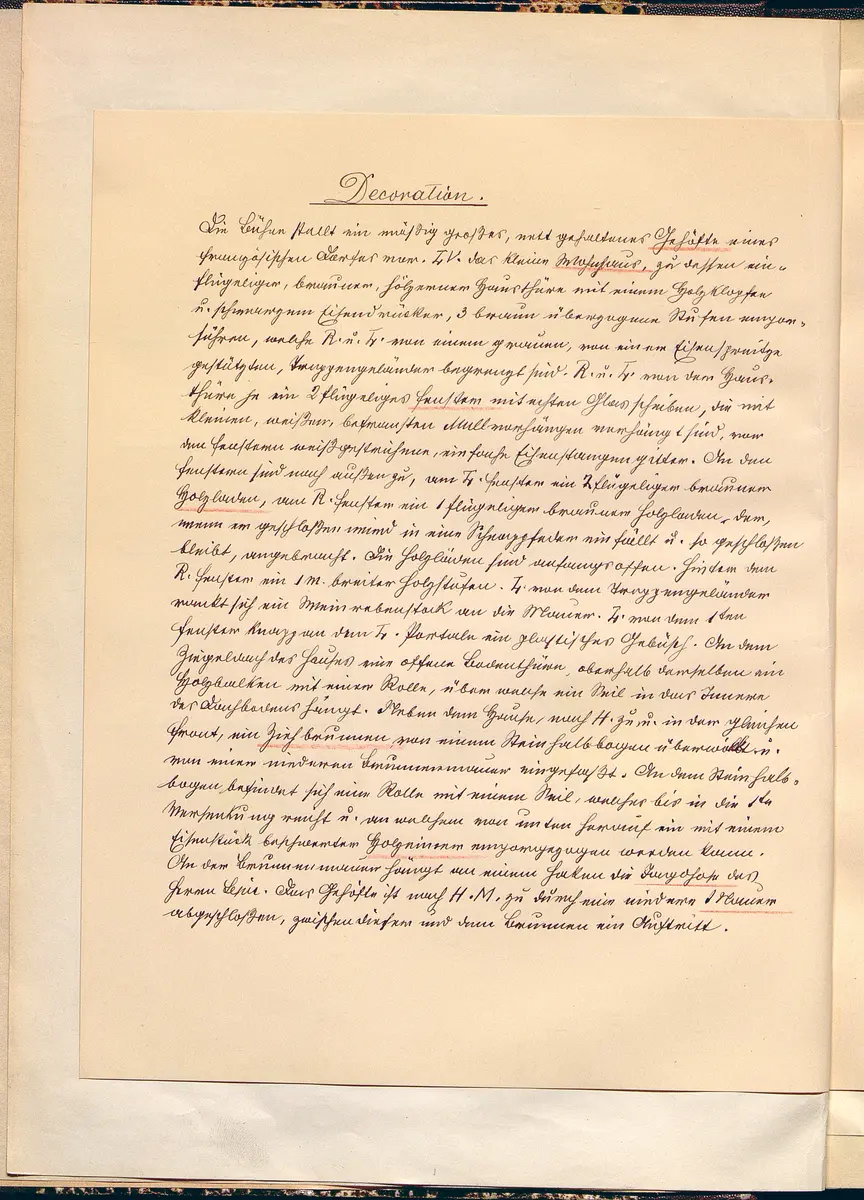 Decoration.
Die Bühne stellt ein mäßig großes, nett gehaltenes Gehöfte eines
französischen Dorfes vor. L. V. das kleine Wohnhaus, zu dessen ein-
flügeliger, brauner, hölzerner Hausthüre mit einem Holzklopfen
u. schwarzem Eisendrücker, 3 braun überzogene Stufen empor-
führen, welche R. u. L. von einem grauen, von einer Eisenspreitze
gestützten, Treppengeländer begrenzt sind. R. u. L. von der Haus-
thüre je ein 2 flügeliges Fenster mit echten Glasscheiben, die mit
kleinen, weißen, befransten Mullvorhängen verhängt sind, vor
den Fenstern weißgestrichene, einfache Eisenstangengitter. An den
Fenstern sind nach außen zu, am L. Fenster ein 2 flügeliger brauner
Holzladen, am R. Fenster ein 1 flügeliger brauner Holzladen, der,
wenn er geschloßen wird in eine Schnappfeder einfällt u. so geschloßen
bleibt, angebracht. Die Holzläden sind anfangs offen. Hinter dem
R. Fenster ein 1 m. breiter Holzstufen. L. von dem Treppengeländer
rankt sich ein Weinrebenstock an die Mauer. L. von dem 1ten
Fenster knapp an dem L. Portale ein plastisches Gebüsch. An dem
Ziegeldach des Hauses eine offene Bodenthüre, oberhalb derselben ein
Holzbalken mit einer Rolle, über welche ein Seil in das Innere
des Dachbodens hängt. Neben dem Hause, nach H. zu u. in der gleichen
Front, ein Ziehbrunnen, von einem Steinhalbbogen überwölbt u.
von einer niederen Brunnenmauer eingefaßt. An dem Steinhalb-
bogen befindet sich eine Rolle mit einem Seil, welches bis in die 1te
Versenkung reicht u. an welchem von unten herauf ein mit einem
Eisenstück beschwerter Holzeimer emporgezogen werden kann.
An der Brunnenmauer hängt an einem Haken die Jagdhose des
Herrn Lepic. Das Gehöfte ist nach H. M. zu durch eine niedere Mauer
abgeschloßen, zwischen dieser und dem Brunnen ein Auftritt.